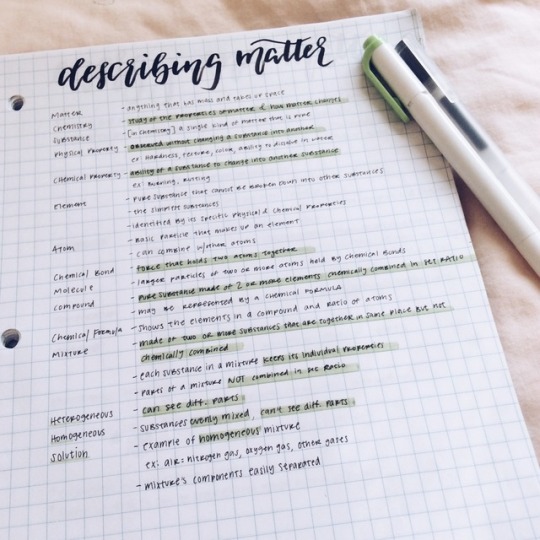 describing matter
Matter - anything that has mass and takes up space
Chemistry - study of the properties of matter & how matter changes
Substance - [in chemistry] a single kind of matter that is pure
Physical Property - observed without changing a substance into another
ex: hardness, texture, color, ability to dissolve in water
Chemical Property - ability of a substance to change into another substance
ex: burning, rusting
Element - pure substance that cannot be broken down into other substances
- the simplest substances
- identified by its specific physical & chemical properties
- basic particle that makes up an element
Atom - can combine w/other atoms
Chemical Bond - force that holds two atoms together
Molecule - larger particles of two or more atoms held by chemical bonds
Compound - pure substance made of 2 or more elements chemically combined in set ratio
- may be represented by a chemical formula
Chemical Formula - shows the elements in a compound and ratio of atoms
Mixture - made of two or more substances that are together in same place but not
chemically combined
- each substance in a mixture keeps its individual properties
- parts of a mixture NOT combined in set ratio
Heterogeneous - can see diff. parts
Homogeneous - substances evenly mixed, can't see diff. parts
Solution - example of homogeneous mixture
ex: air: nitrogen gas, oxygen gas, other gases
- mixture's components easily separated